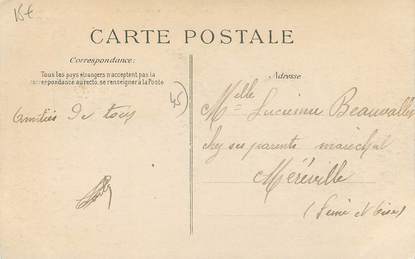 15€
CARTE POSTALE
Correspondance:
Tous les pays étrangers n'acceptent pas la
correspondance au recto, se renseigner à la Poste
Adresse
45
Melle Lucienne Beauvallet
Amitiés de tous
chez ses parents maréchal
Méréville
(Seine et Oise)